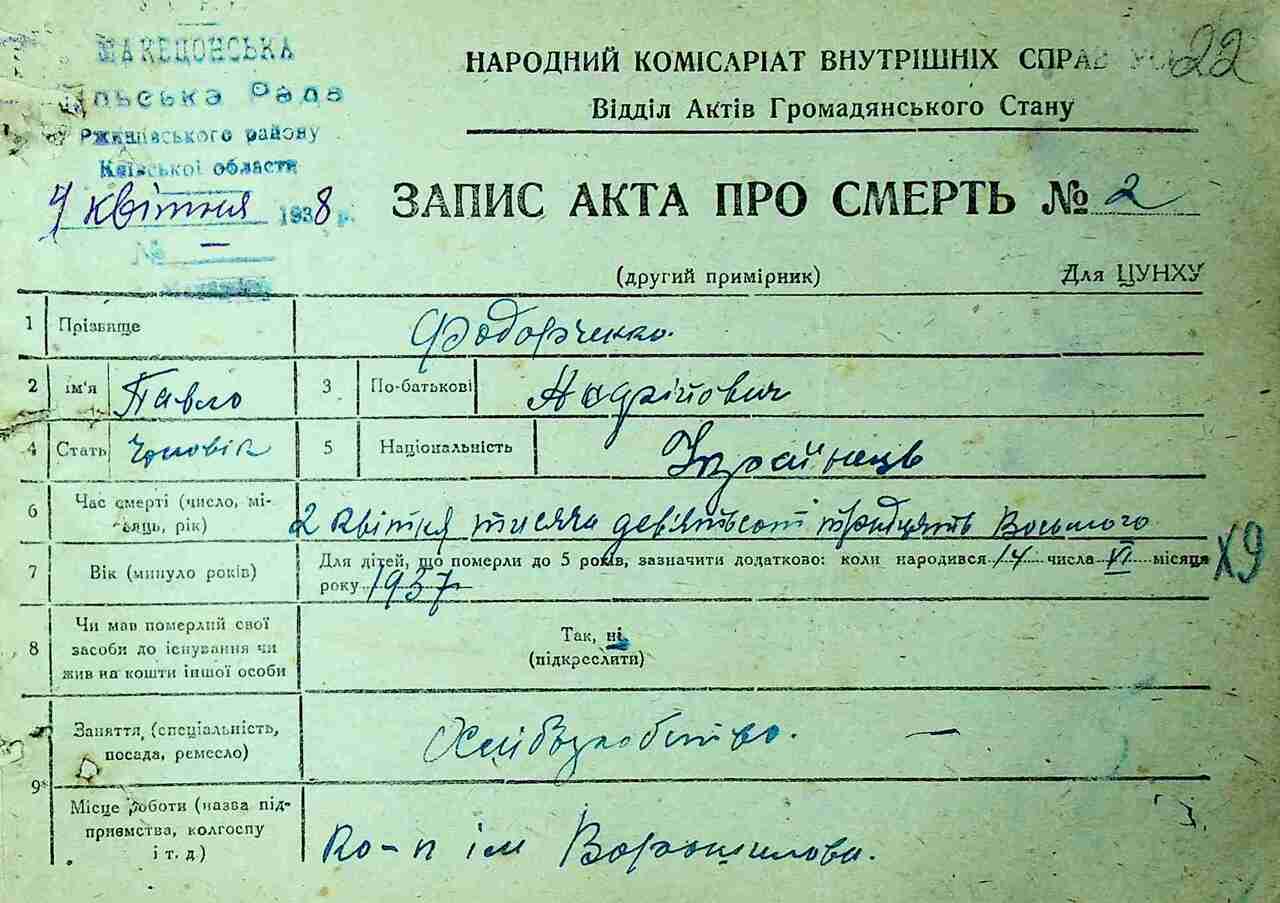 МАКЕДОНСЬКА
сільська Рада
Ржищівського району
Київської области
7 квітня 1938 р.
№ —
22
НАРОДНИЙ КОМІСАРІАТ ВНУТРІШНІХ СПРАВ
Відділ Актів Громадянського Стану
ЗАПИС АКТА ПРО СМЕРТЬ № 2
(другий примірник)
Для ЦУНХУ
1 Прізвище Федорченко.
2 ім'я Павло 3 По-батькові Андрійович
4 Стать Чоловік 5 Національність Українець
6 Час смерті (число, мі-
сяць, рік) 2 квітня тисяча дев'ятьсот тридцять восьмого
7 Вік (минуло років) Для дітей, що померли до 5 років, зазначити додатково: коли народився 14 числа VI місяця
року 1937
Х9
8 Чи мав померлий свої
засоби до існування чи
жив на кошти іншої особи
Так, ні
(підкреслити)
9 Заняття, (спеціальність,
посада, ремесло) Хліборобство. —
Місце роботи (назва під-
приємства, колгоспу
і т. д.) К-п ім Ворошилова.